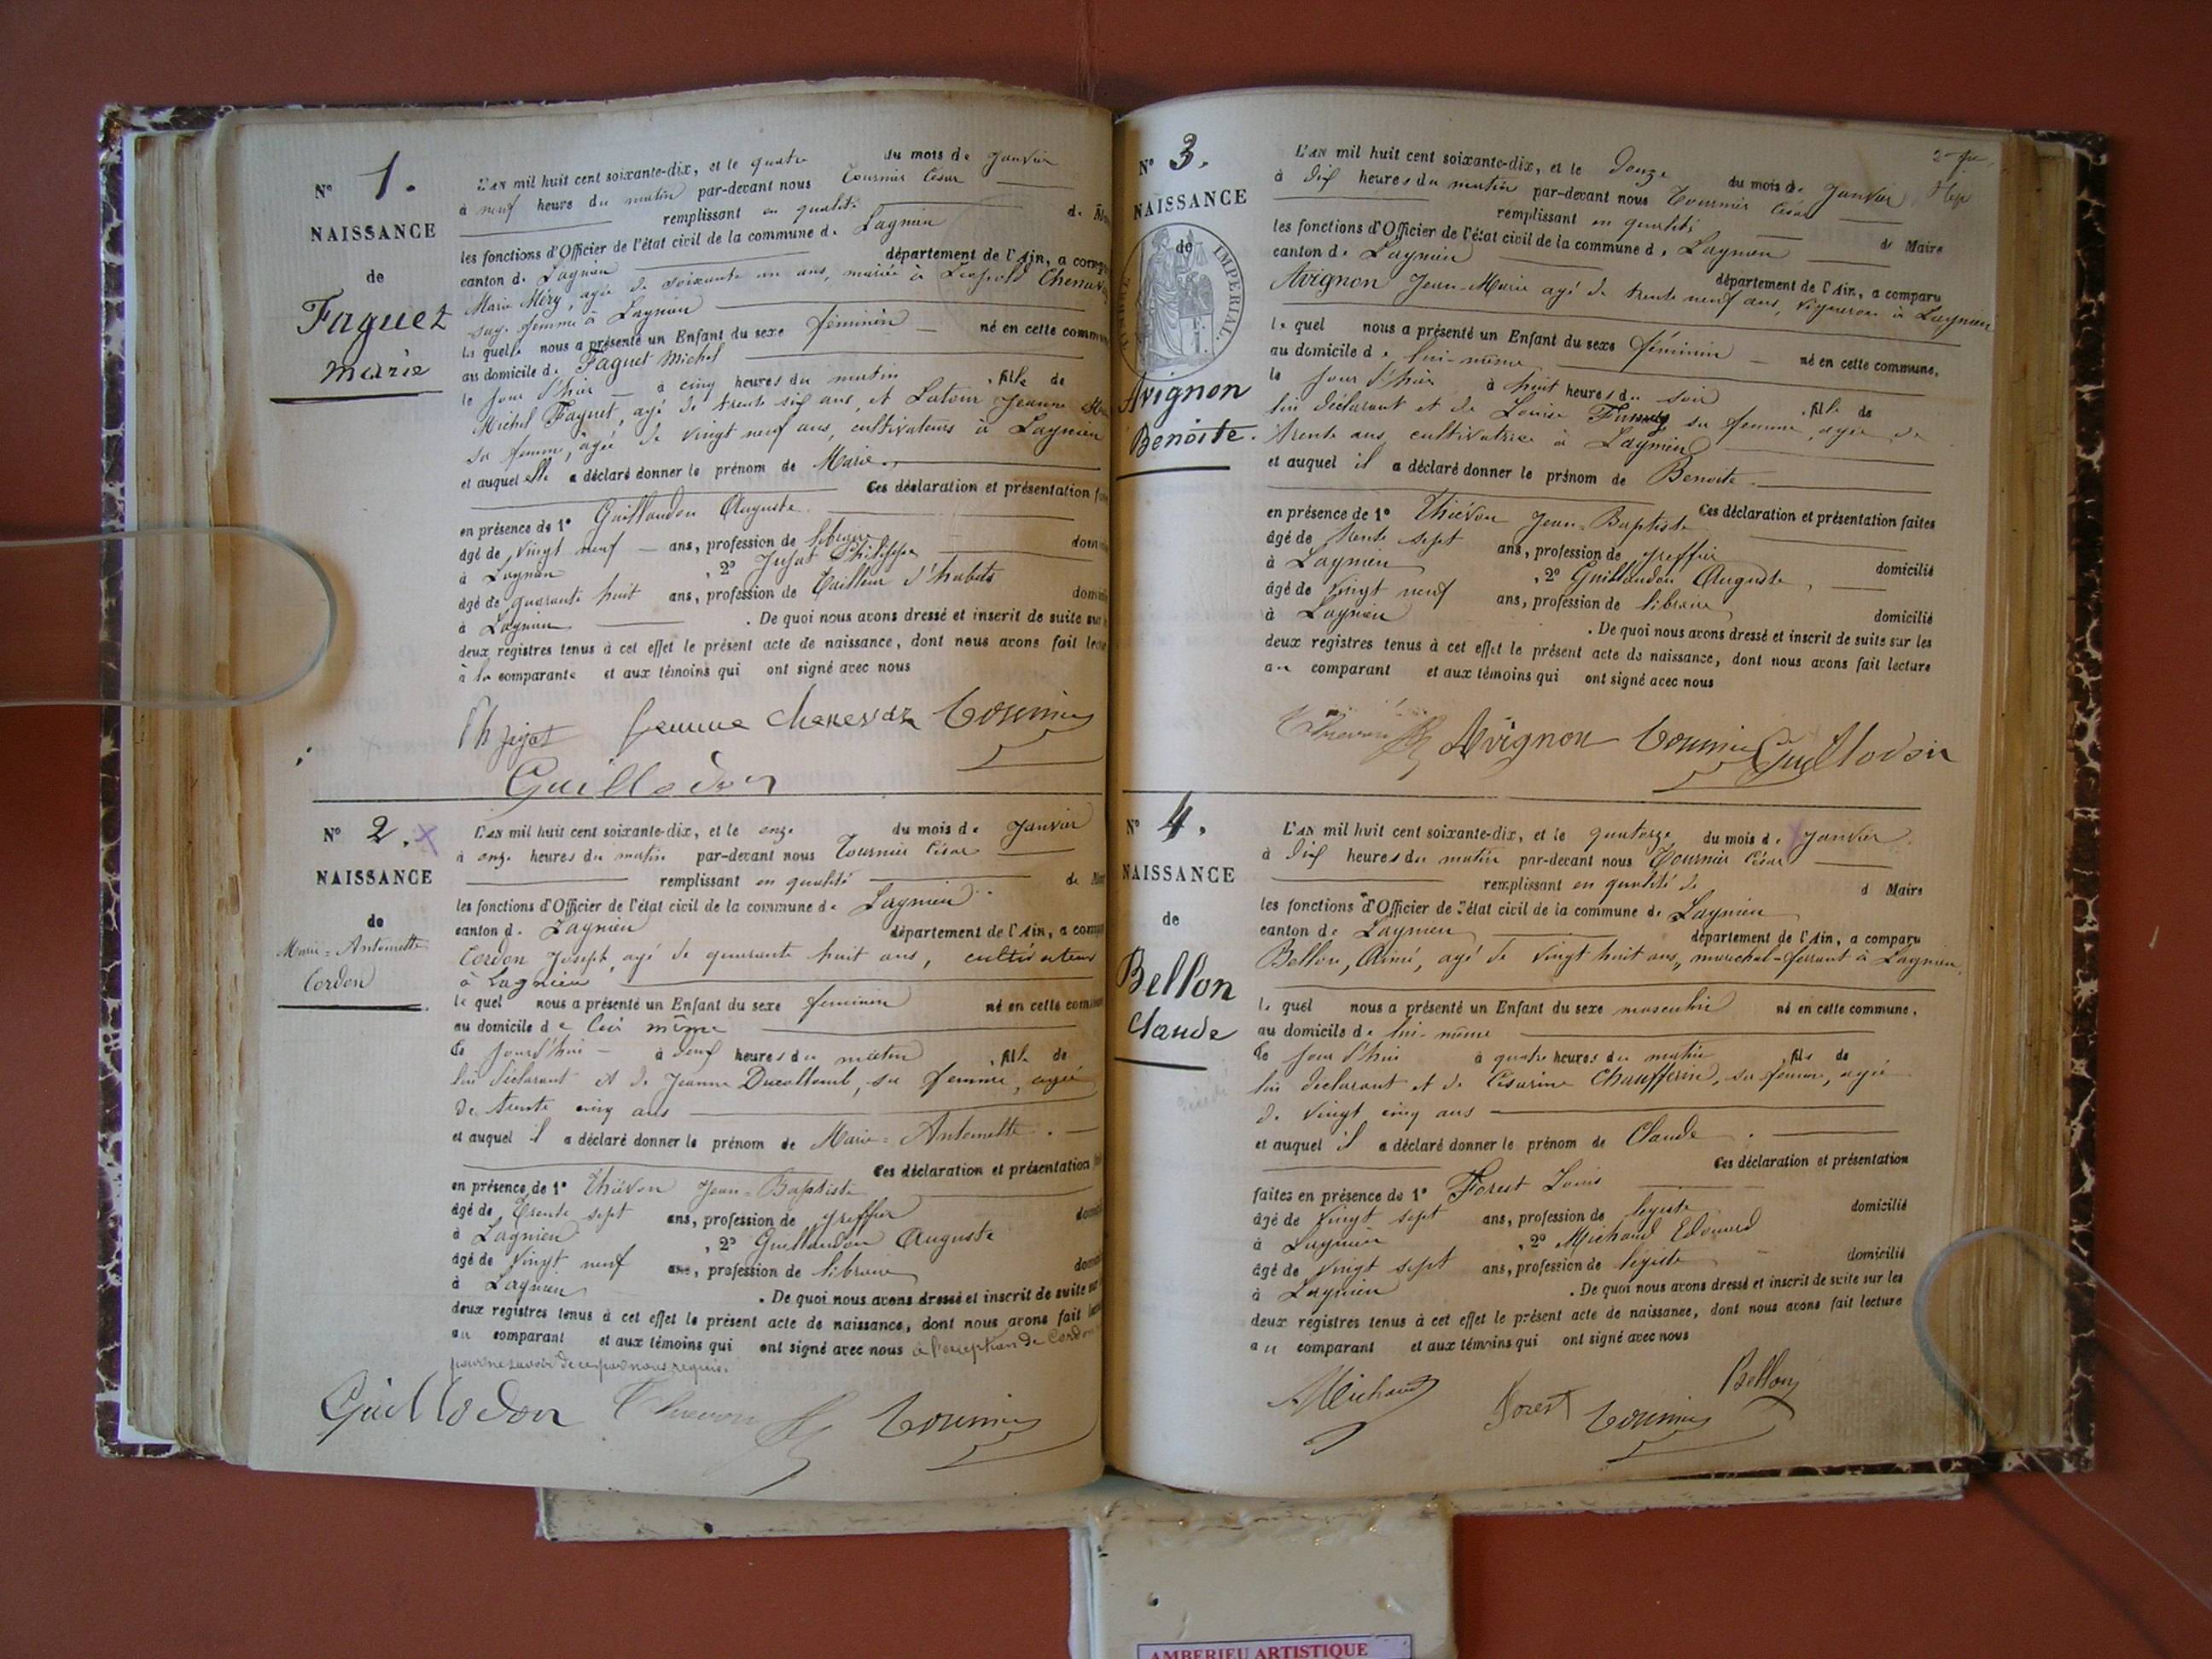 N° 1.
NAISSANCE
de
Faguet
Marie
L'AN mil huit cent soixante-dix, et le quatre du mois de Janvier
à neuf heures du matin par-devant nous Tournier César
remplissant en qualité de
les fonctions d'Officier de l'état civil de la commune de Lagnieu
canton de Lagnieu département de l'Ain, a
Marie Méry, agée de soixante un ans, mariée à Léopold
sage femme à Lagnieu
la quelle nous a présenté un Enfant du sexe féminin né en cette
au domicile de Faguet Michel
le jour d'hier à cinq heures du matin , fille de
Michel Faguet, agé de trente six ans, et Latour Jeanne
sa femme, agée de vingt neuf ans, cultivateurs à Lagnieu
et auquel elle a déclaré donner le prénom de Marie.
Ces déclaration et présentation
en présence de 1° Guillaudon Auguste
âgé de vingt neuf ans, profession de libraire
à Lagnieu , 2° Philippe
âgé de quarante huit ans, profession de Tailleur d'habits
à Lagnieu . De quoi nous avons dressé et inscrit de suite sur
deux registres tenus à cet effet le présent acte de naissance, dont nous avons fait
à la comparante et aux témoins qui ont signé avec nous
femme Tournier
Guillodon
N° 2. x
NAISSANCE
de
Marie-Antoinette
Cordon
L'AN mil huit cent soixante-dix, et le onze du mois de Janvier
à onze heures du matin par-devant nous Tournier César
remplissant en qualité de
les fonctions d'Officier de l'état civil de la commune de Lagnieu
canton de Lagnieu département de l'Ain, a
Cordon Joseph, agé de quarante huit ans, cultivateur
à Lagnieu
le quel nous a présenté un Enfant du sexe féminin né en cette
au domicile de lui même
le jourd'hui à heures du matin , fille de
lui déclarant et de Jeanne Ducollomb, sa femme, agée
de trente cinq ans
et auquel il a déclaré donner le prénom de Marie-Antoinette.
Ces déclaration et présentation
en présence de 1° Thiévon Jean-Baptiste
âgé de Trente sept ans, profession de greffier
à Lagnieu , 2° Guillaudon Auguste
âgé de vingt neuf ans, profession de libraire
à Lagnieu . De quoi nous avons dressé et inscrit de suite
deux registres tenus à cet effet le présent acte de naissance, dont nous avons fait
au comparant et aux témoins qui ont signé avec nous à l'exception de Cordon
pour ne savoir de ce par nous requis.
Guillodon Thievon Tournier
N° 3.
NAISSANCE
de
TIMBRE IMPÉRIAL
Avignon
Benoite.
L'AN mil huit cent soixante-dix, et le Douze du mois de Janvier
à dix heures du matin par-devant nous Tournier César
remplissant en qualité de Maire
les fonctions d'Officier de l'état civil de la commune de Lagnieu
canton de Lagnieu département de l'Ain, a comparu
Avignon Jean-Marie agé de trente neuf ans, vigneron à Lagnieu
le quel nous a présenté un Enfant du sexe féminin né en cette commune,
au domicile de lui-même
le jour d'hier à huit heures du soir , fille de
lui déclarant et de Louise sa femme, agée de
trente ans, cultivatrice à Lagnieu
et auquel il a déclaré donner le prénom de Benoite.
Ces déclaration et présentation faites
en présence de 1° Thiévon Jean-Baptiste
âgé de trente sept ans, profession de greffier domicilié
à Lagnieu , 2° Guillaudon Auguste,
âgé de vingt neuf ans, profession de libraire domicilié
à Lagnieu . De quoi nous avons dressé et inscrit de suite sur les
deux registres tenus à cet effet le présent acte de naissance, dont nous avons fait lecture
au comparant et aux témoins qui ont signé avec nous
Thievon Avignon Tournier Guillodon
N° 4.
NAISSANCE
de
Bellon
Claude
L'AN mil huit cent soixante-dix, et le quatorze du mois de Janvier
à dix heures du matin par-devant nous Tournier César
remplissant en qualité de d Maire
les fonctions d'Officier de l'état civil de la commune de Lagnieu
canton de Lagnieu département de l'Ain, a comparu
Bellon, Aimé, agé de vingt huit ans, maréchal-ferrant à Lagnieu,
le quel nous a présenté un Enfant du sexe masculin né en cette commune,
au domicile de lui-même
le jour d'hui à quatre heures du matin , fils de
lui déclarant et de Césarine Chaufferin, sa femme, agée
de vingt cinq ans
et auquel il a déclaré donner le prénom de Claude.
Ces déclaration et présentation
faites en présence de 1° Forest Louis
âgé de vingt sept ans, profession de légiste domicilié
à Lagnieu , 2° Michaud Edouard
âgé de vingt sept ans, profession de légiste domicilié
à Lagnieu . De quoi nous avons dressé et inscrit de suite sur les
deux registres tenus à cet effet le présent acte de naissance, dont nous avons fait lecture
au comparant et aux témoins qui ont signé avec nous
Michaud Forest Tournier Bellon
AMBERIEU ARTISTIQUE